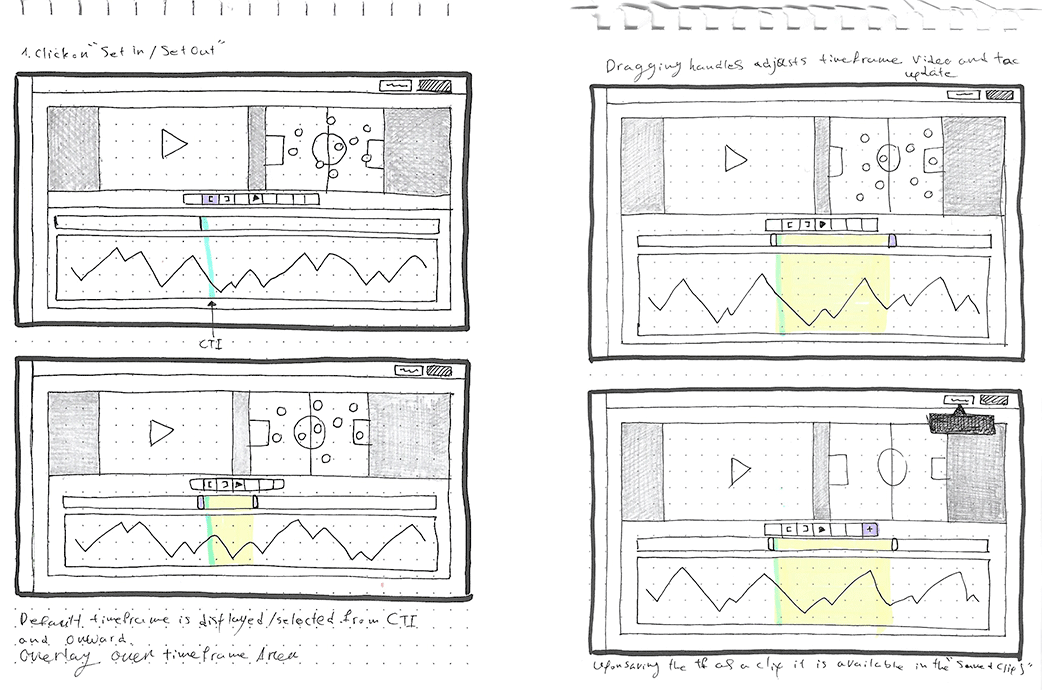 1. Click on "Set In / Set Out"
CTI
Default timeframe is displayed/selected from CTI
and onward.
Overlay over timeframe Area
Dragging handles adjusts timeframe video and tac
update
Upon saving the tf as a clip it is available in the "Saved Clips"